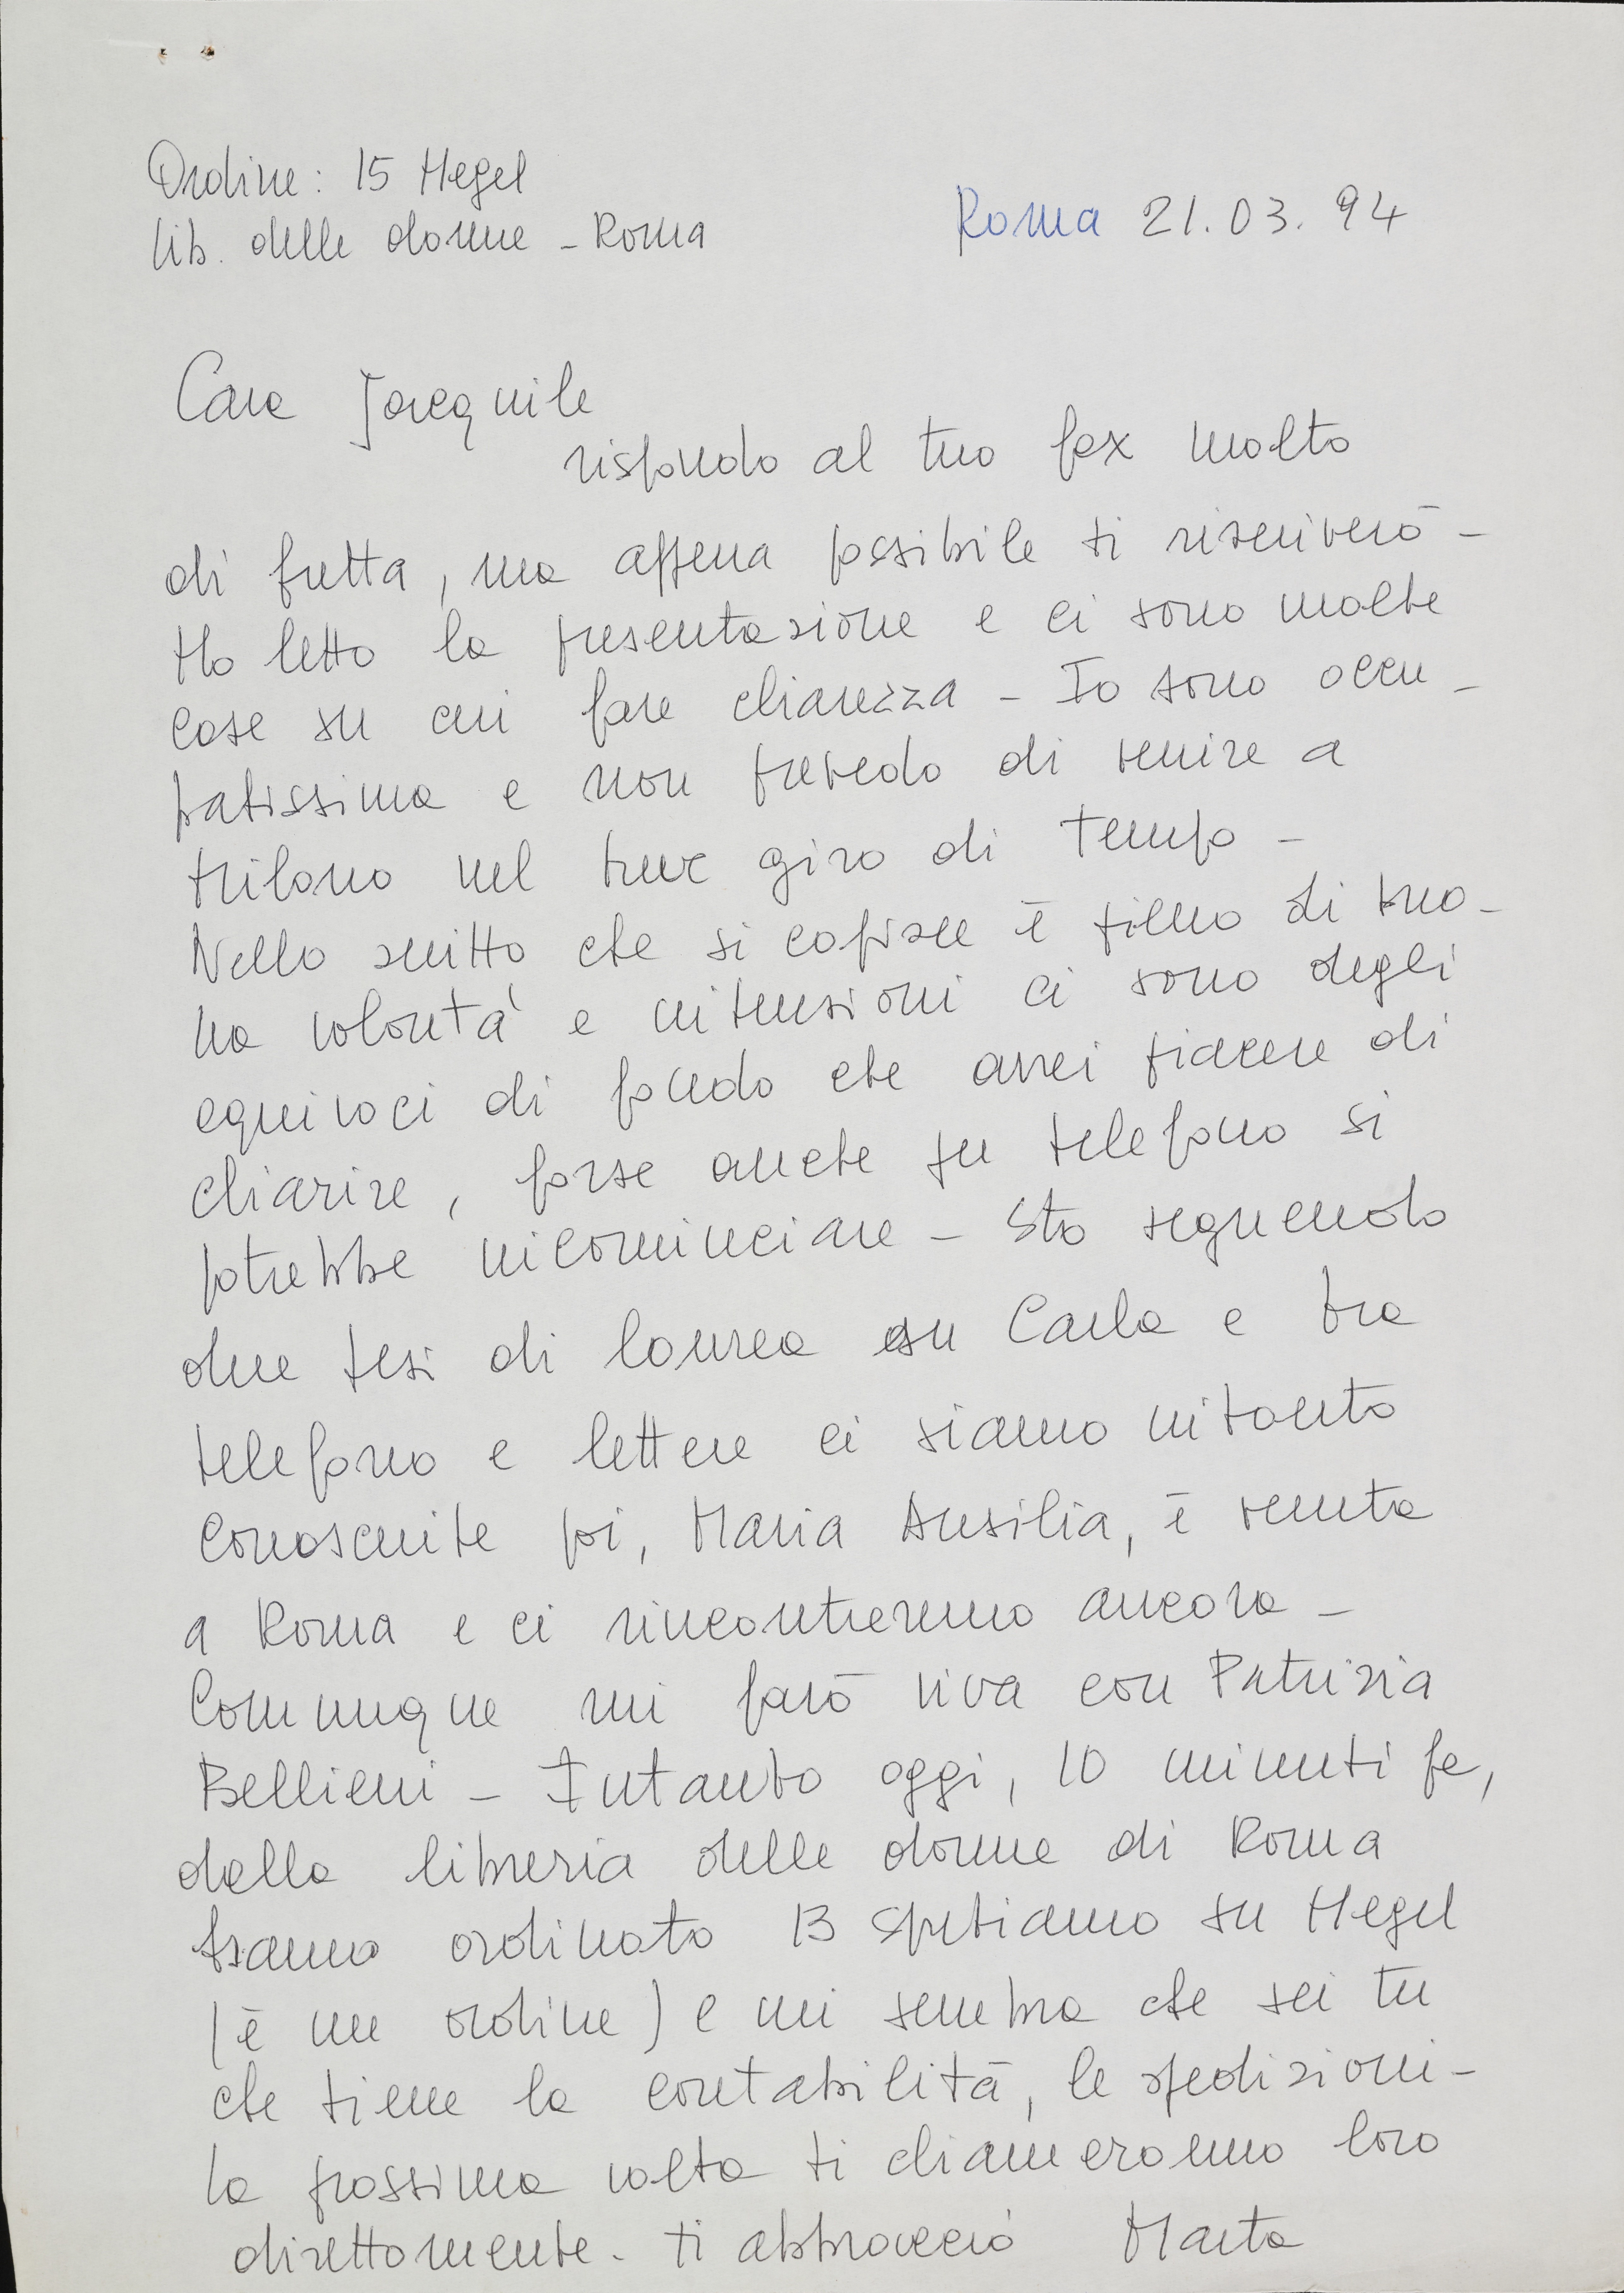 Ordine: 15 Hegel
lib. delle donne - Roma
Roma 21.03.94
Cara Jacquile
rispondo al tuo fax molto
di fretta, ma appena possibile ti riscriverò -
Ho letto la presentazione e ci sono molte
cose su cui fare chiarezza - Io sono occu-
patissima e non prevedo di venire a
Milano nel breve giro di tempo -
Nello scritto che si capisce è pieno di buo-
na volontà e intenzioni ci sono degli
equivoci di fondo che avrei piacere di
chiarire, forse anche per telefono si
potrebbe incominciare - Sto seguendo
due tesi di laurea su Carla e tra
telefono e lettere ci siamo intanto
conosciute poi, Maria Ausilia, è venuta
a Roma e ci rincontreremo ancora -
Comunque mi farò viva con Patrizia
Bellieni - Intanto oggi, 10 minuti fa,
dalla libreria delle donne di Roma
hanno ordinato 13 Sputiamo su Hegel
(è un ordine) e mi sembra che sei tu
che tiene la contabilità, le spedizioni -
la prossima volta ti chiameranno loro
direttamente. ti abbraccio Marta